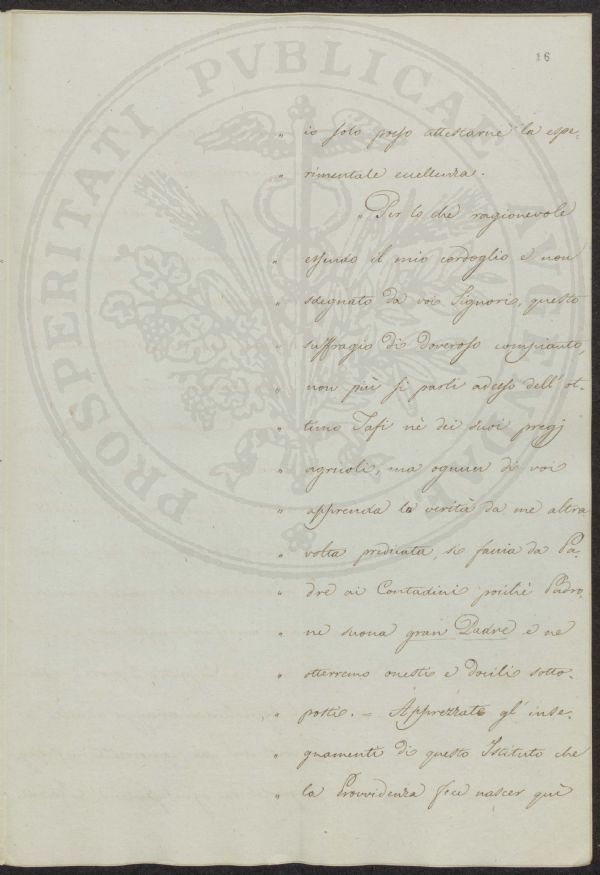 16
PROSPERITATI PVBLICAE AVGENDAE
" io solo posso attestarne la espe-
" rimentale eccellenza.
" Per lo che ragionevole
" essendo il mio cordoglio e non
" sdegnato da voi Signori, questo
" suffragio di doveroso compianto,
" non più si parli adesso dell' ot-
" timo Tafi nè dei suoi pregj
" agricoli, ma ognun di voi
" apprenda la verità da me altra
" volta predicata, si faccia da Pa-
" dre ai Contadini poichè Padro-
" ne suona gran Padre e ne
" otterremo onesti e docili sotto-
" posti. = Apprezzate gl' inse-
" gnamenti di questo Istituto che
" la Provvidenza fece nascer quì